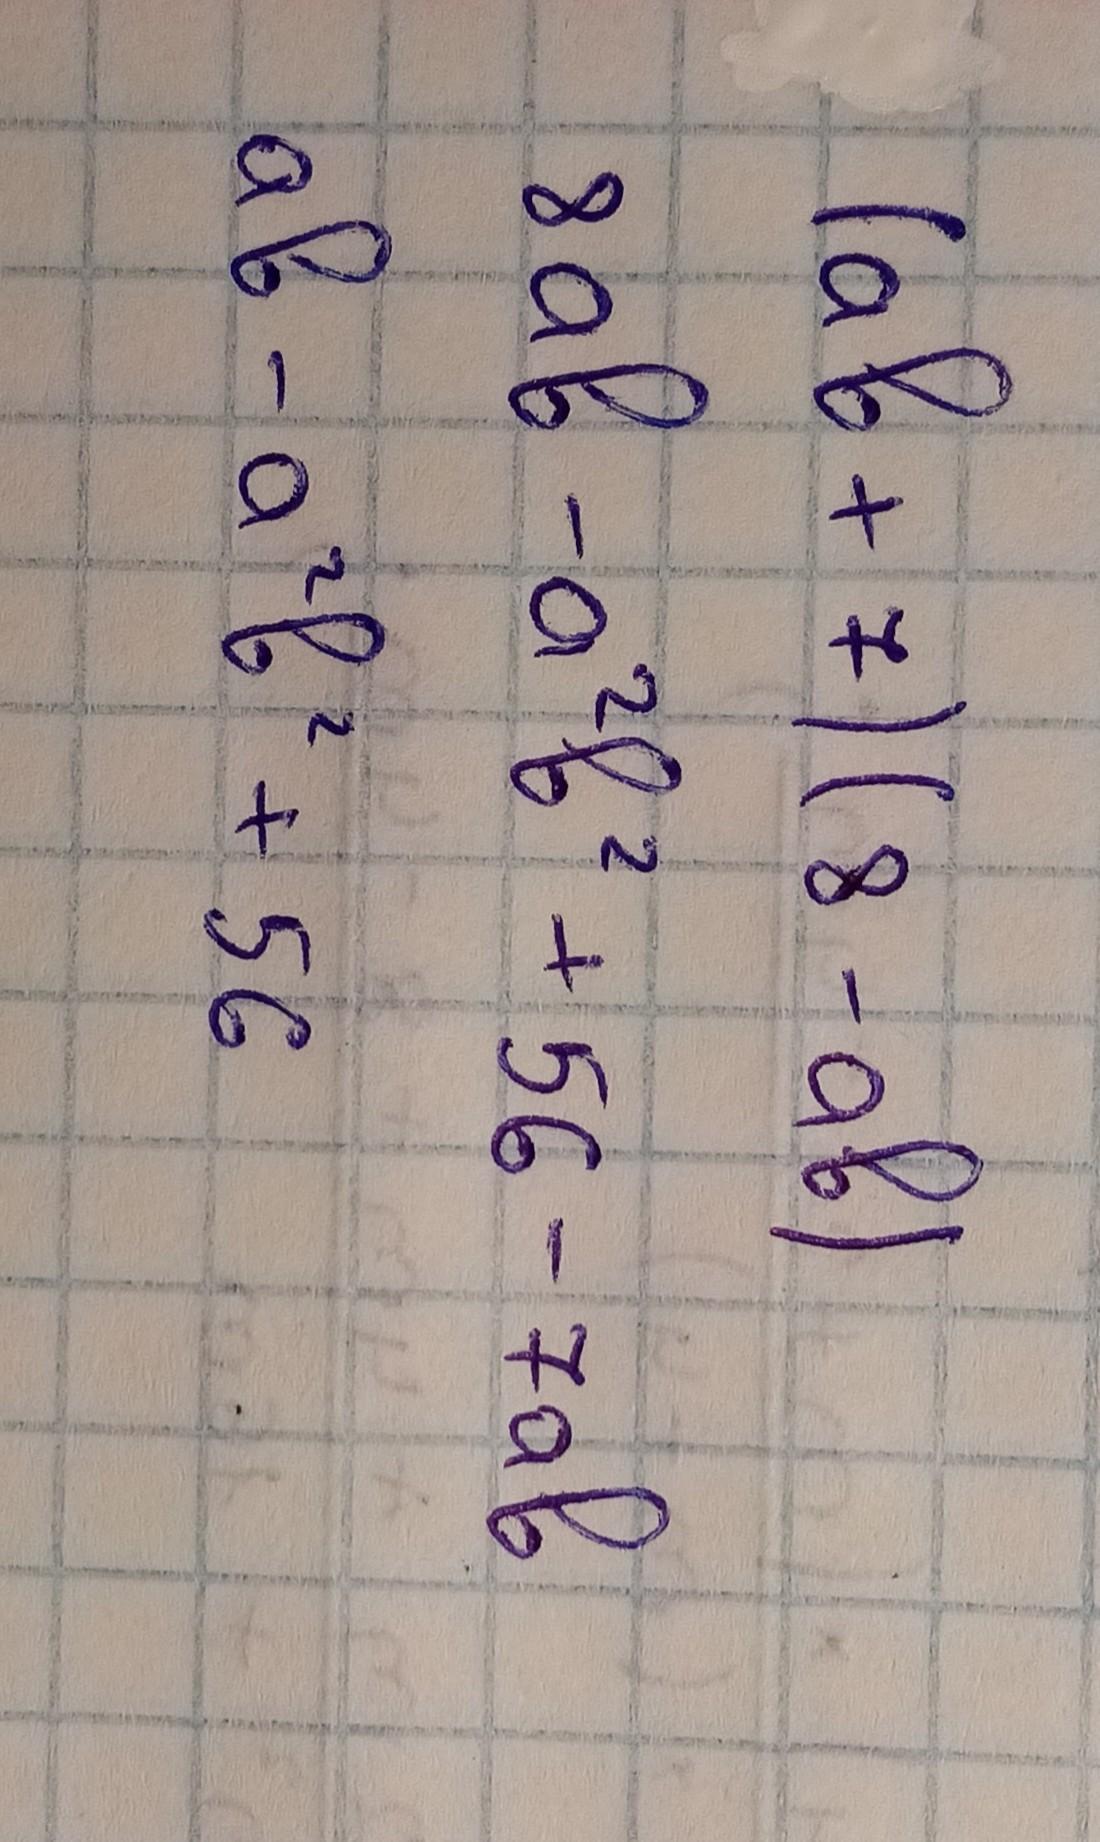 (ab + 7)(8 - ab)
8ab - a²b² + 56 - 7ab
ab - a²b² + 56